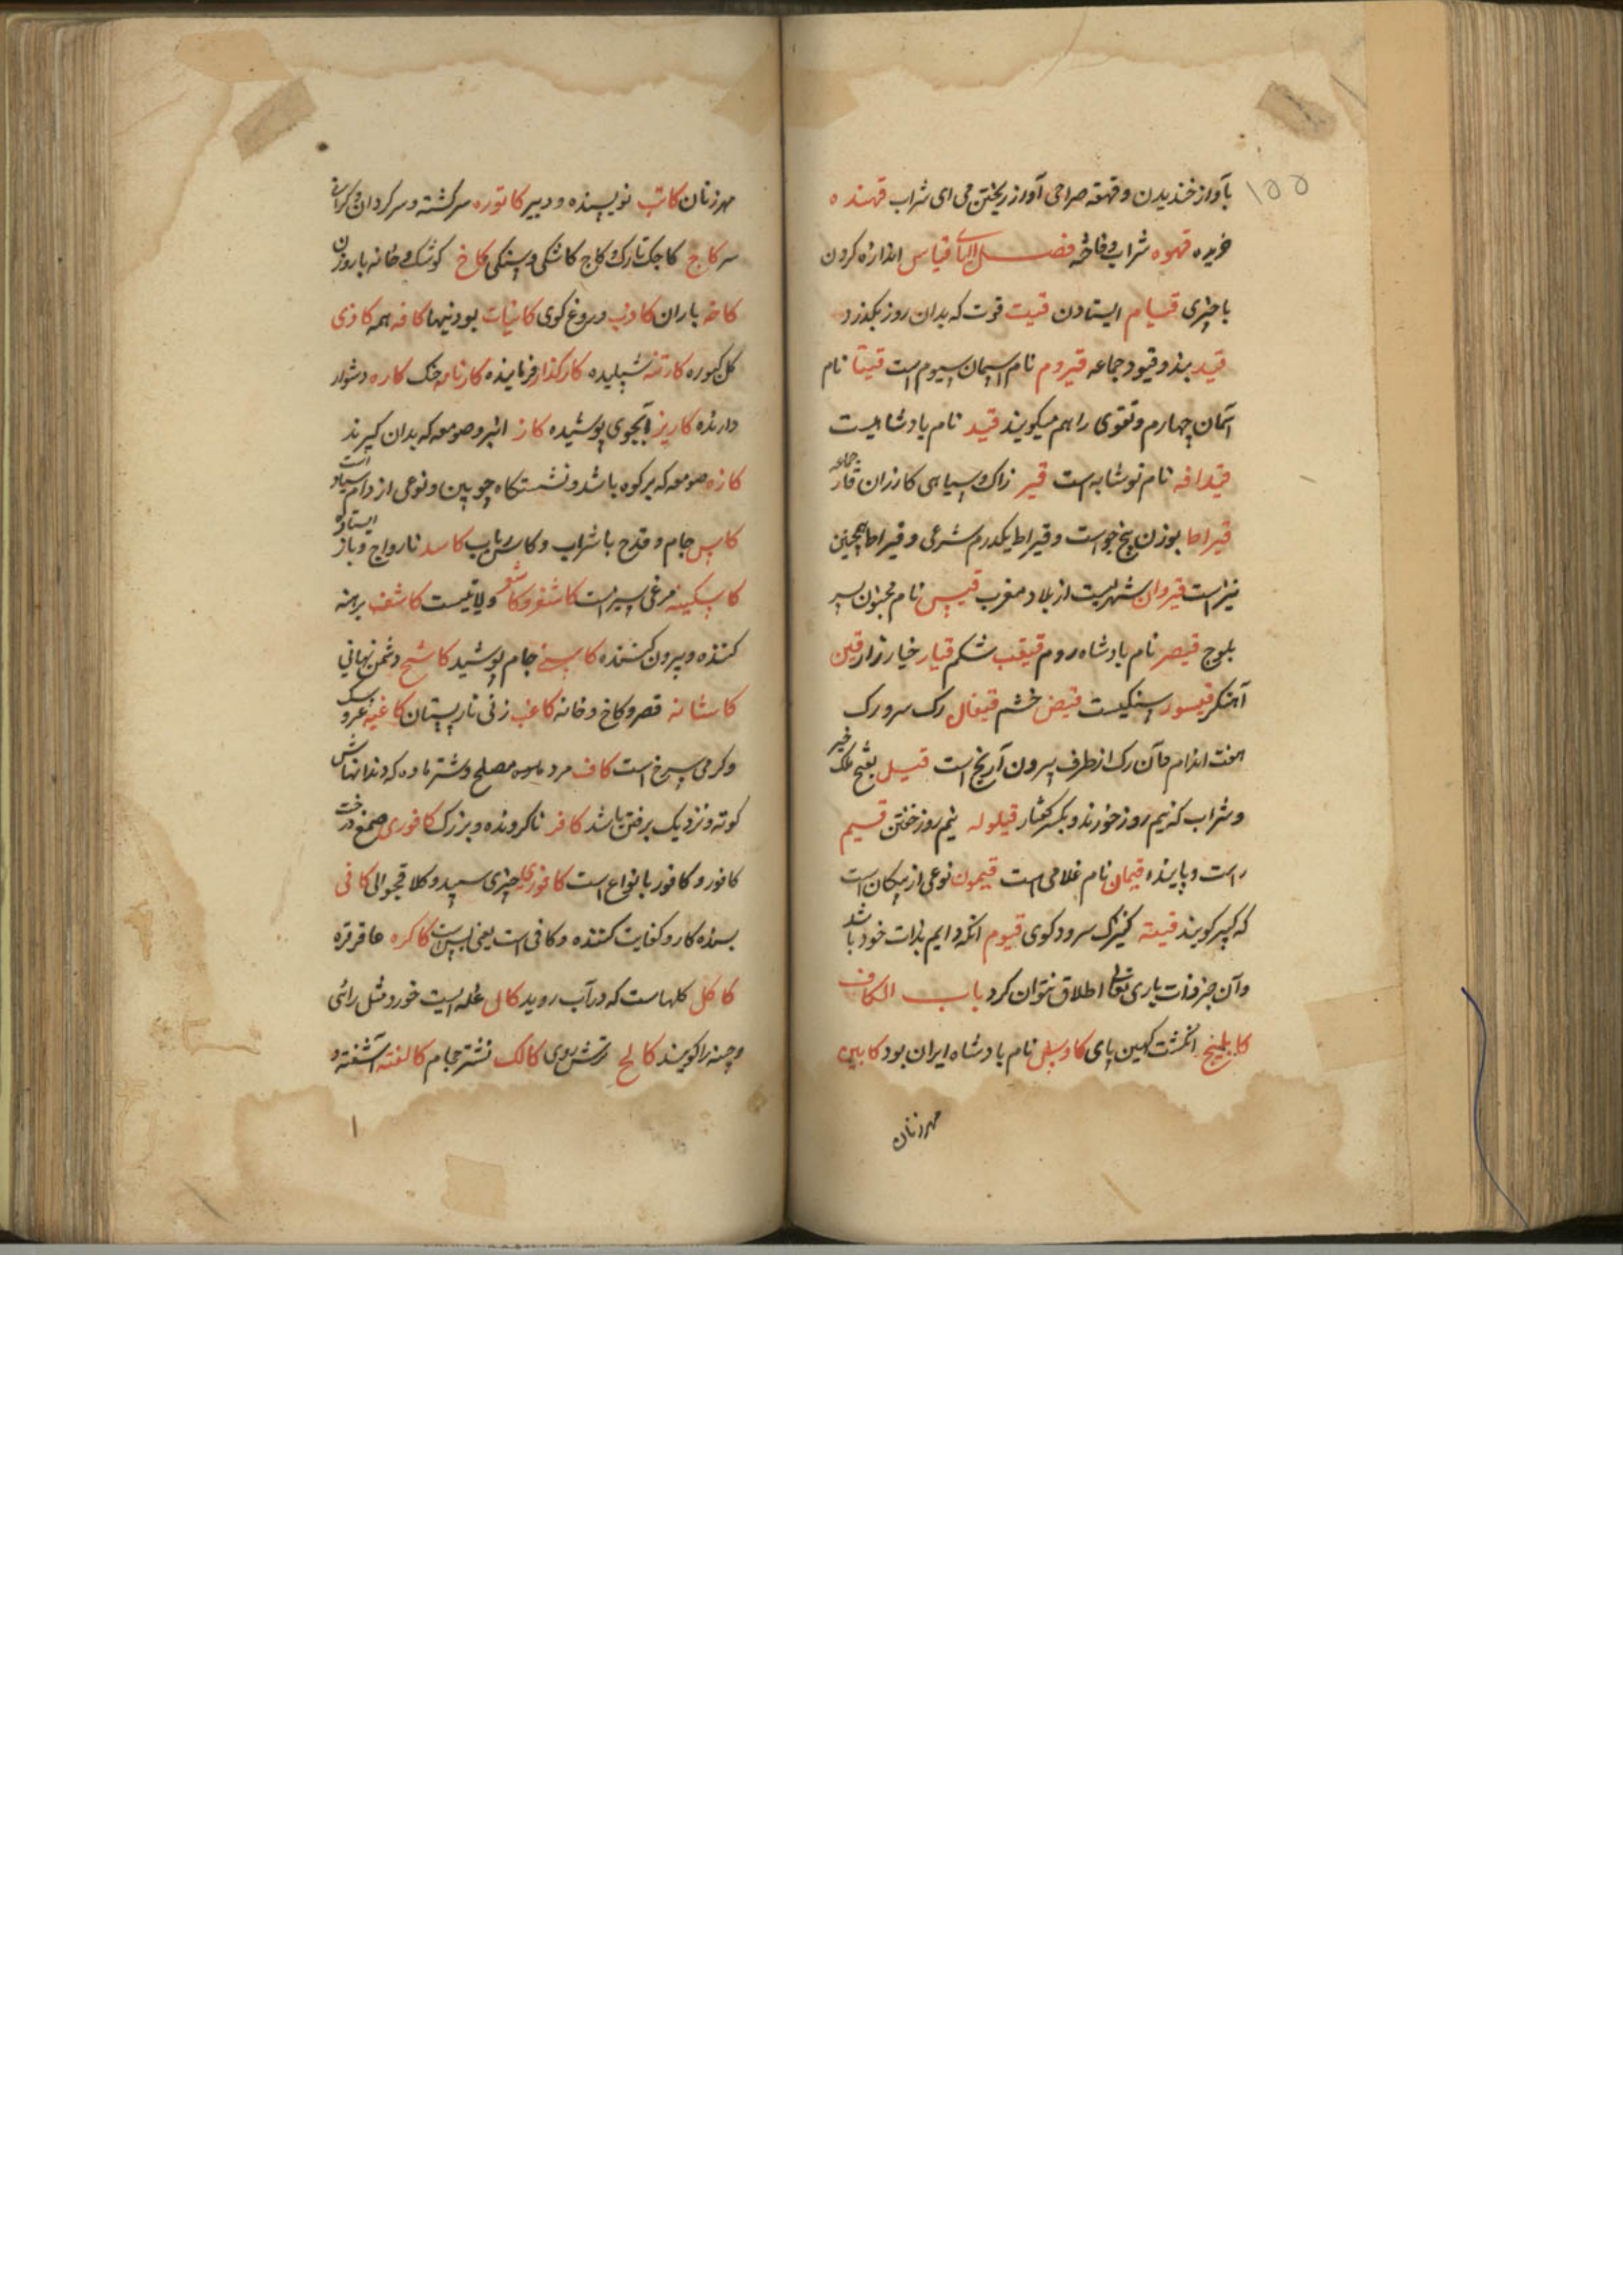 ۱۵۵
بآواز خندیدن و قهقهه صراحی آواز ریختن می ای شراب قهنده
خریده قهوه شراب و فاخته فصل الیاء قیاس اندازه کردن
با چیزی قیام ایستادن قیت قوت که بدان روز بگذرد
قید بند و قیود جماعه قیروم نام آسمان سیوم است قیتا نام
آسمان چهارم و تقوی را هم میگویند قید نام پادشاهیست
قیدافه نام نوشابه است قیر زاک و سیاهی کارزان قار جماعه
قیراط بوزن پنج جو است و قیراط یکدرم شرعی و قیراط همچنین
نیز است قیروان شهریست از بلاد مغرب قیس نام مجنون پسر
بلوج قیصر نام پادشاه روم قیقب شکم قیار خیارزار قین
آهنگر قیسور سنگیست قیض خشم قیفال رک سر و رک
هفت اندام و آن رک از طرف بیرون آرنج است قیل بفتح ملک خیر
و شراب که نیم روز خورند و بکسر گفتار قیلوله نیم روز خفتن قیم
راست و پاینده قیمان نام غلامی است قیمون نوعی از پیکان است
که کیبر گویند قینه کنیزک سرود گوی قیوم آنکه دایم بذات خود باشد
و آن جز ذات باری تعالی اطلاق نتوان کرد باب الکاف
کابلیج انگشت کهین پای کاوس نام پادشاه ایران بود کابین
مهر زنان
مهر زنان کاتب نویسنده و دبیر کاتوره سرگشته و سرگردان و گرانی
سر کاج کاجک تارک و کاج کاشکی و سنگی کاخ کوشک و خانه با روزن
کاخه باران کاذب دروغ گوی کاینات بودنیها کافه همه کاذی
کل کیوره کارتنه شپلیده کارگذار فرماینده کارنامه جنگ کاره دشوار
دارنده کاریز آبجوی پوشیده کاز انبر و صومعه که بدان گیرند
کازه صومعه که بر کوه باشد و نشستگاه چوبین و نوعی از دام صیاد است
کاس جام و قدح با شراب و کاس رباب کاسد ناروا ج و باز ایستاده
کاسکینه مرغی سبز است کاشغر و کاشغر ولایتیست کاشف برهنه
کننده و بیرون کشنده کاسی جام پوشید کاشح دشمن نهانی
کاشانه قصر و کاخ و خانه کاعب زنی نارپستان کاغنه عروسک
و کرمی سرخ است کاف مرد مصلح و شتر ماده که دندانهاش
کوته و نزدیک بر فتن باشد کافر ناگرونده و بزرک کافوری صمغ درخت
کافور و کافور بانواع است کافوری چیزی سپید و کلا قیحوالی کافی
بسنده کار و کفایت کننده و کافی است یعنی بس است کاکره عاقرقره
کاکل گلهاست که در آب روید کالی غله ایست خورد مثل رائی
و چینه را گویند کالح ترش روی کالک نشتر حجام کالفته آشفته و